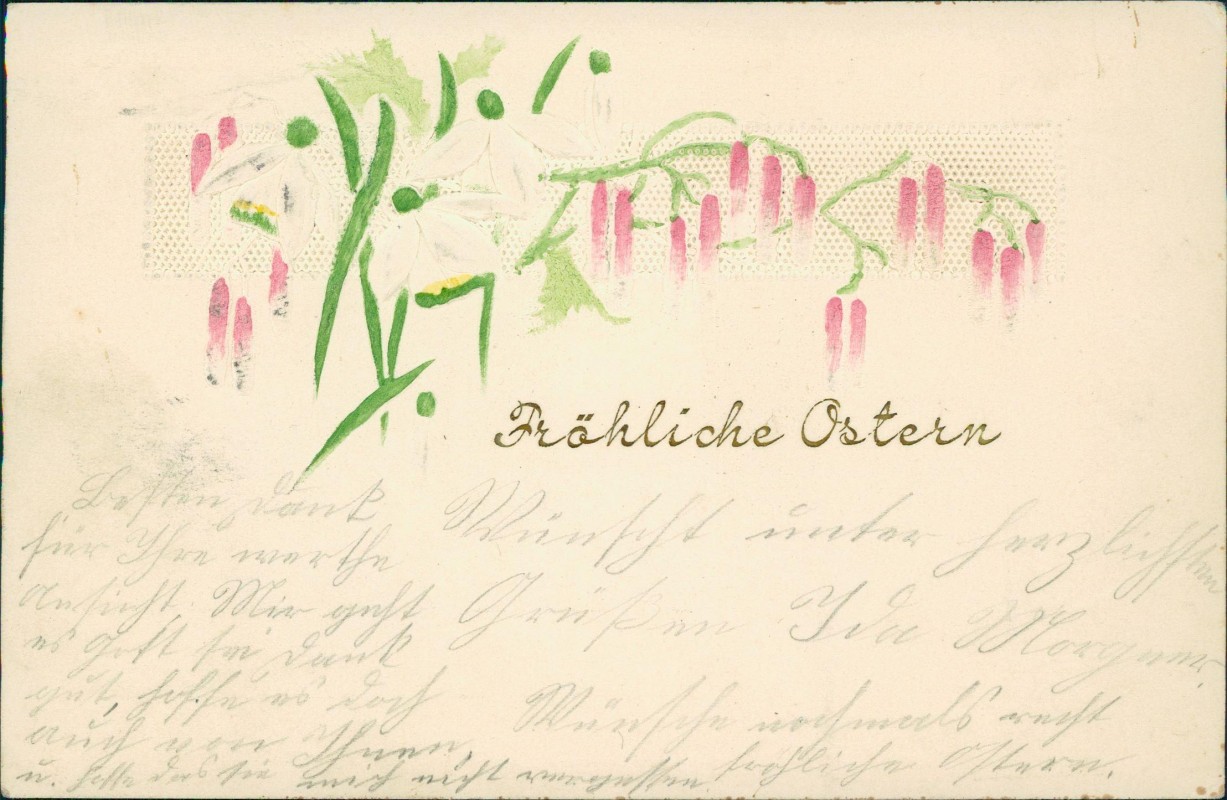 Fröhliche Ostern
Besten Dank
für Ihre werthe
Ansicht. Mir geht
es Gott sei Dank
gut, hoffe es doch
auch von Ihnen,
u. hoffe das sie mich nicht vergessen.
Wünscht unter herzlichsten
Grüßen Ida Morgner.
Wünsche nochmals recht
fröhliche Ostern.